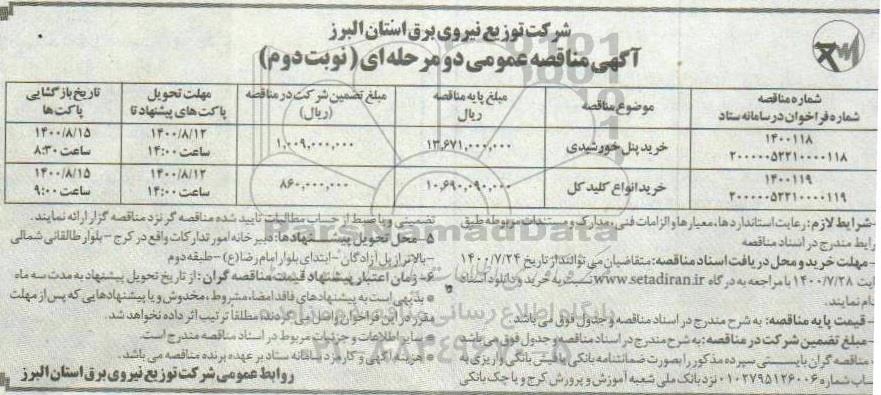 شرکت توزیع نیروی برق استان البرز
آگهی مناقصه عمومی دو مرحله ای (نوبت دوم)
شماره مناقصه
شماره فراخوان در سامانه ستاد
موضوع مناقصه
مبلغ پایه مناقصه
ریال
مبلغ تضمین شرکت در مناقصه
(ریال)
مهلت تحویل
پاکت های پیشنهاد تا
تاریخ بازگشایی
پاکت ها
۱۴۰۰۱۱۸
۲۰۰۰۰۰۵۲۲۱۰۰۰۰۱۱۸
خرید پنل خورشیدی
۱۳,۶۷۱,۰۰۰,۰۰۰
۱,۰۰۹,۰۰۰,۰۰۰
۱۴۰۰/۸/۱۲
ساعت ۱۴:۰۰
۱۴۰۰/۸/۱۵
ساعت ۸:۳۰
۱۴۰۰۱۱۹
۲۰۰۰۰۰۵۲۲۱۰۰۰۰۱۱۹
خرید انواع کلید کل
۱۰,۶۹۰,۰۹۰,۰۰۰
۸۶۰,۰۰۰,۰۰۰
۱۴۰۰/۸/۱۲
ساعت ۱۴:۰۰
۱۴۰۰/۸/۱۵
ساعت ۹:۰۰
-شرایط لازم: رعایت استانداردها، معیارها و الزامات فنی و مدارک و مستندات مربوطه طبق
رایط مندرج در اسناد مناقصه
-مهلت خرید و محل دریافت اسناد مناقصه: متقاضیان می توانند از تاریخ ۱۴۰۰/۷/۲۴
ایت ۱۴۰۰/۷/۲۸ با مراجعه به درگاه www.setadiran.ir نسبت به خرید و دانلود اسناد
ام نمایند.
- قیمت پایه مناقصه: به شرح مندرج در اسناد مناقصه و جدول فوق می باشد
- مبلغ تضمین شرکت در مناقصه: به شرح مندرج در اسناد مناقصه و جدول فوق می باشد
، مناقصه گران بایستی سپرده مذکور را بصورت ضمانتنامه بانکی یا فیش بانکی واریزی به
ساب شماره ۰۱۰۲۷۹۵۱۲۶۰۰۶ نزد بانک ملی شعبه آموزش و پرورش کرج و یا چک بانکی
تضمینی و یا ضبط از حساب مطالبات تایید شده مناقصه گر نزد مناقصه گزار ارائه نمایند.
۵- محل تحویل پیشنهادها: دبیرخانه امور تدارکات واقع در کرج - بلوار طالقانی شمالی
- بالاتر از پل آزادگان - ابتدای بلوار امام رضا(ع) - طبقه دوم
۶- زمان اعتبار پیشنهاد قیمت مناقصه گران: از تاریخ تحویل پیشنهاد به مدت سه ماه
بدیهی است به پیشنهادهای فاقد امضاء، مشروط، مخدوش و یا پیشنهادهایی که پس از مهلت
مقرر در این فراخوان واصل می گردند، مطلقا ترتیب اثر داده نخواهد شد.
سایر اطلاعات و جزئیات مربوط در اسناد مناقصه مندرج است.
هزینه آگهی و کارمزد سامانه ستاد بر عهده برنده مناقصه می باشد.
روابط عمومی شرکت توزیع نیروی برق استان البرز
ParsNamadData